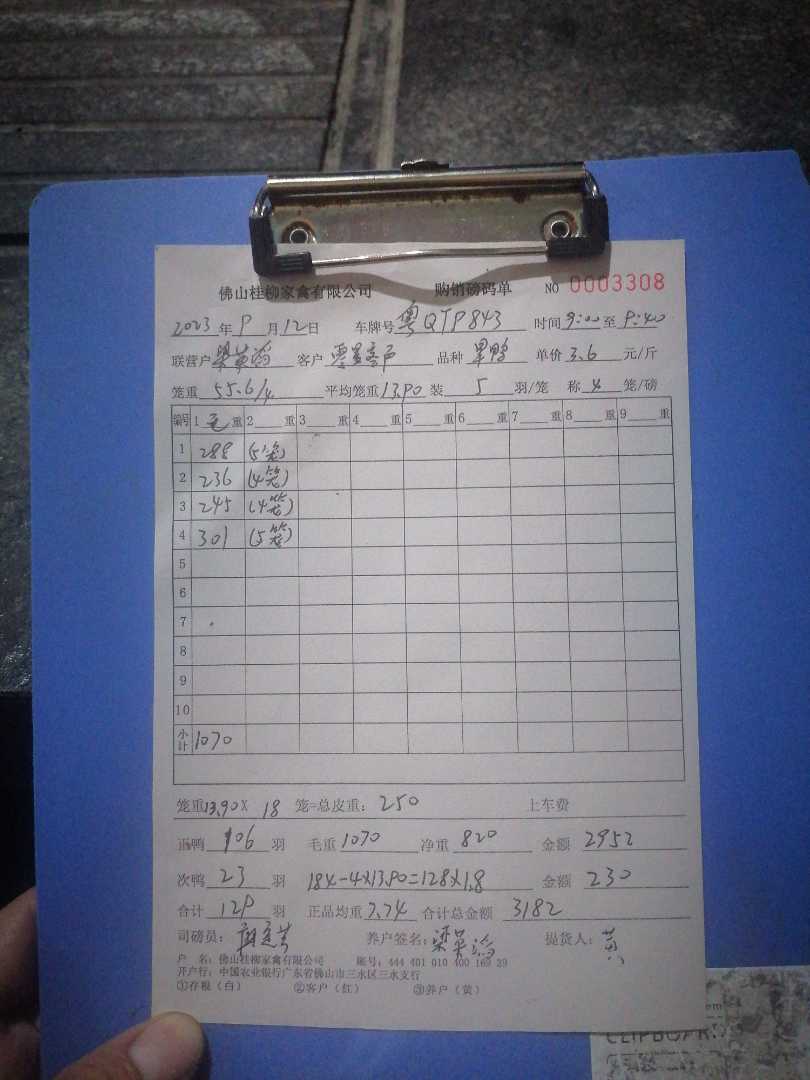 佛山桂柳家禽有限公司 购销磅码单 NO 0003308
2023 年 9 月 12 日 车牌号 粤QTP843 时间 9:00 至 9:40
联营户 梁英滔 客户 零星客户 品种 单价 3.6 元/斤
笼重 55.6/4 平均笼重 13.90 装 5 羽/笼 称 4 笼/磅
编号 1 毛 重 2 重 3 重 4 重 5 重 6 重 7 重 8 重 9 重
1 288 (5笼)
2 236 (4笼)
3 245 (4笼)
4 301 (5笼)
5
6
7
8
9
10
小计 1070
笼重 13.90 X 18 笼=总皮重: 250 上车费
正鸭 106 羽 毛重 1070 净重 820 金额 2952
次鸭 23 羽 184-4×13.90=128×1.8 金额 230
合计 129 羽 正品均重 7.74 合计总金额 3182
司磅员: 养户签名: 梁英滔 提货人: 黄
户 名: 佛山桂柳家禽有限公司 账号: 444 401 010 400 163 39
开户行: 中国农业银行广东省佛山市三水区三水支行
①存根（白） ②客户（红） ③养户（黄）
CLIPBOAR